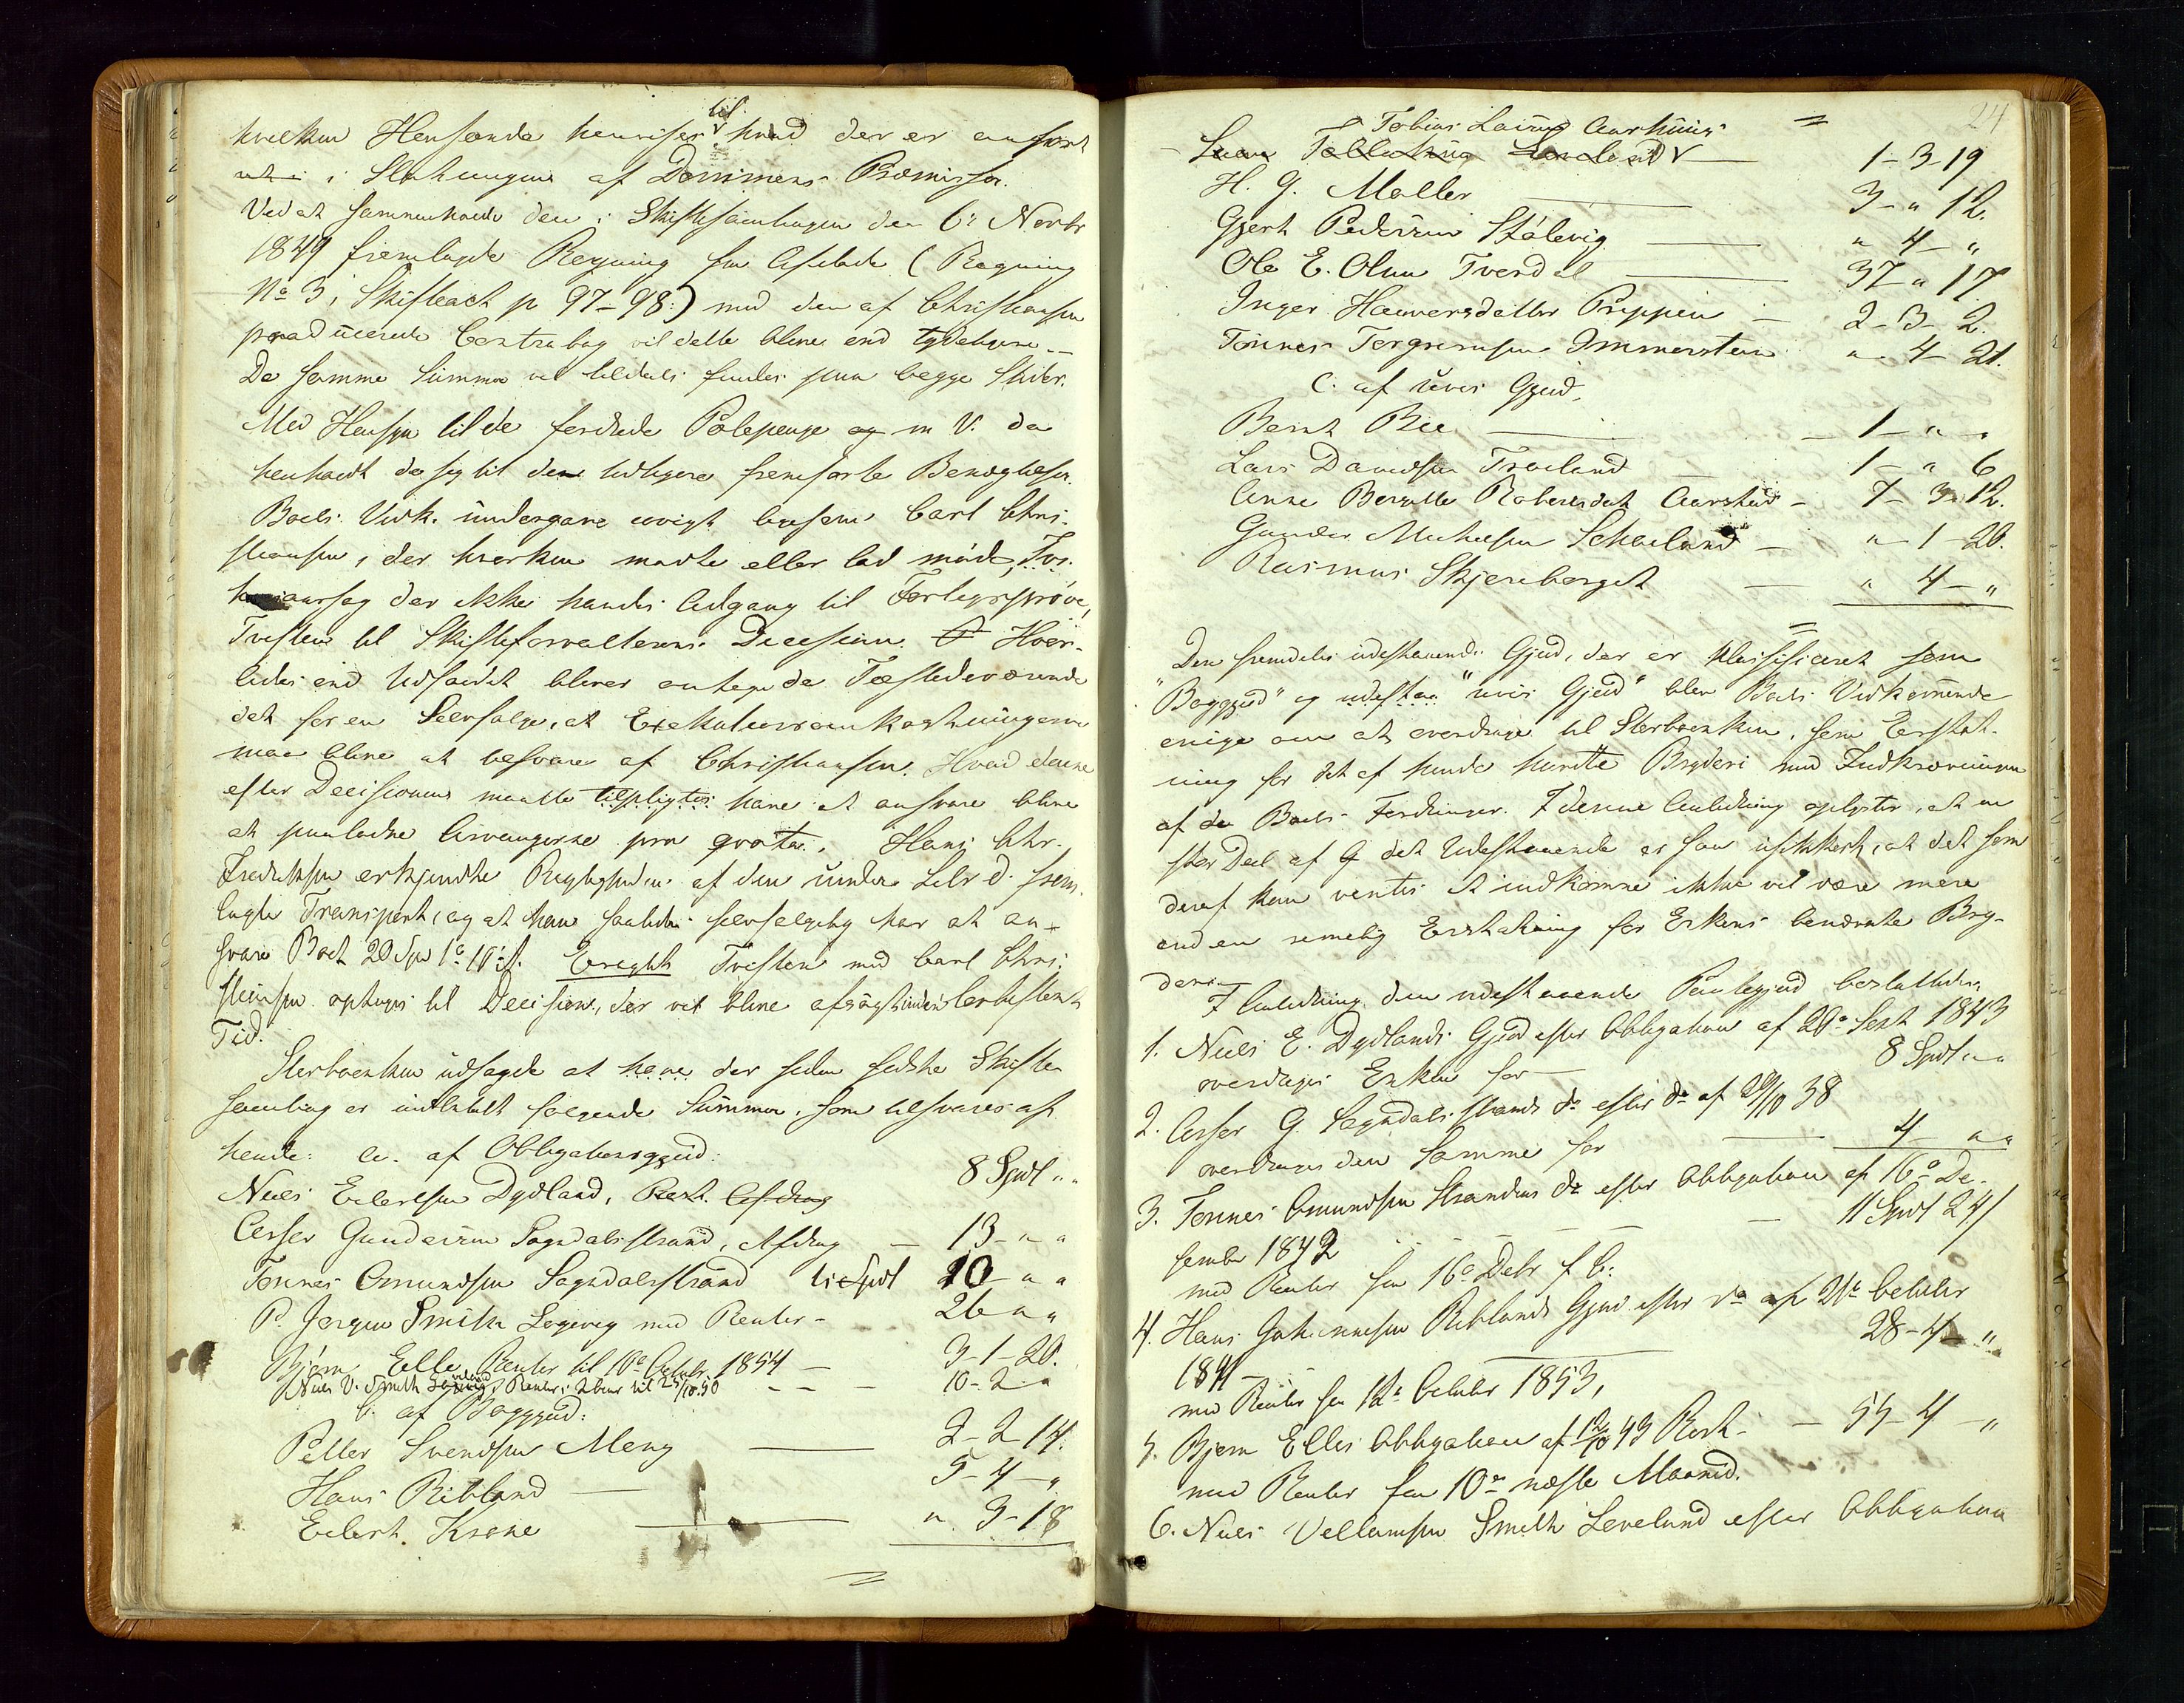 til
hvilken Henseende henvises hvad der er anført
i Slutningen af Dommens Præmisser.
Ved at sammenholde den i Skiftesamlingen den 6: Novbr
1849 fremlagde Regning fra Afdøde (Regning
No 3, Skifteact p 97-98:) med den af Christiansen
producerede Contrabog vil dette blive end tydeligere.
De samme Summer vil tildeels findes paa begge Sider.
Med Hensyn til de fordrede Pålepenge og m. V. da
henholdt de sig til den tidligere fremførte Benægtelser.
Boets Vedk. undergave øvrigt ligesom Carl Chri-
stiansen, der hverken mødte eller lod møde,
der ikke handes Adgang til Forligsprøve,
Tvisten til Skifteforvalterens Decision. Hvor-
ledes end Udfaldet bliver antage de Tilstedeværende
det for en Selvfølge, at Exekutionsomkostningerne
maa blive at besvare af Christiansen. Hvad denne
efter Decisionens maatte tilpligtes have at ansvare blive
at paaladne Arvingerne pro qvota. Hans Chr.
Fredriksen erkjendte Rigtigheden af den under Litr d. frem-
lagte Transport, og at han saaledes selvfølgelig har at an-
svare Boet 20 Spd 1 16 s. Tvisten med Carl Chri-
stiansen optages til Decision, der vil blive afsagt inden Lovbestemt
Tid.
Sterboenken udsagde at have der siden sidste Skifte-
samling er indbetalt følgende Summer, som tilsvares af
hende: a. af Obligationsgjeld:
Niels Eilertsen Dydland, Rest. Afdrag 8 Spd " "
Asser Gundersen Sogndalsstrand, Afdrag — 13 - " "
Tønnes Omundsen Sogndalsstrand ti Spd 10 - " "
P. Jørgen Smith Løgevig med Renter - 26 " "
Bjørn Eelle, Renter til 10de Octobr 1854 — 3-1-20.
Niels V. Smith Renter i 2 Aar til 25/10 50 - - - 10-2-"
b. af Boggjeld:
Petter Svendsen Meng — 2-2-14.
Hans Ribland — 5-4-"
Eilert Krone — " 3-18
24
Tobias Aarstad
1-3-19
H. G. Møller — 3-" 12.
Gjert Pedersen Stølevig — " 4-"
Ole E. Olsen Tverdal — 37 " 17
Inger Haaversdatter Prippen — 2-3-2.
Tønnes Torgersensen Immerstein " 4-21.
c. af uvis Gjeld.
Bernt Bie — 1-"-"
Lars Davidsen Trøeland 1-" 6
Anne Bergitte Robertsdat Aarstad - 7-3-12.
Gunder Michelsen Schaeland — " 1-20.
Rasmus Skjereberget — " 4-"
Den fremdeles udestaaende Gjeld, der er klassificeret som
"Boggjeld" og "uvis Gjeld" blev Boets Vedkommende
enige om at overdrage til Sterboenken, som Erstat-
ning for det af hende havte Bryderi med Indkrævningen
af de Boets Fordringer. I denne Anledning oplystes, at en
stor Deel af det Udestaaende er saa usikkert, at det som
deraf kan ventes at indkomme ikke vil være mere
end en rimelig Erstatning for Enkens benævnte Bry-
deri.
I Anledning den udestaaende Pantegjeld besluttedes
1. Niels E. Dydlands Gjeld efter Obligation af 20de Sept 1843
overdrages Enken for — 8 Spd " "
2. Asser G. Sogndalsstrands do efter do af 29/10 38
overdrages den samme for — 4 " "
3. Tønnes Omundsen Strandens do efter Obligation af 16de De-
sember 1842 — 11 Spd 24 s
med Renter fra 16de Debr f. A:
4. Hans Gabrielsen Riblands Gjeld efter do af 21de October
1841 — 28-4-"
med Renter fra 12te October 1853,
5. Bjørn Elles Obligation af 12/10 43 Rest — 54-4-"
med Renter fra 10de næste Maaned.
6. Niels Vellumsen Smith Leveland efter Obligation